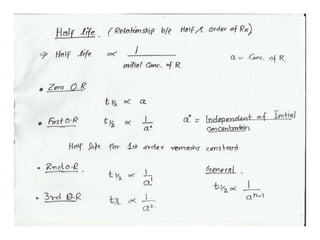 Half life. (Relationship b/t Half & order of Rx)
⇒ Half life ∝ 1 / initial Conc. of R
a = Conc. of R.
• Zero O.R
t½ ∝ a
• First O.R t½ ∝ 1/a° a° = Independent of Initial concentration.
Half life for 1st order remains constant
• 2nd O.R t½ ∝ 1/a¹
General.
t½ ∝ 1/aⁿ⁻¹
• 3rd O.R t½ ∝ 1/a²